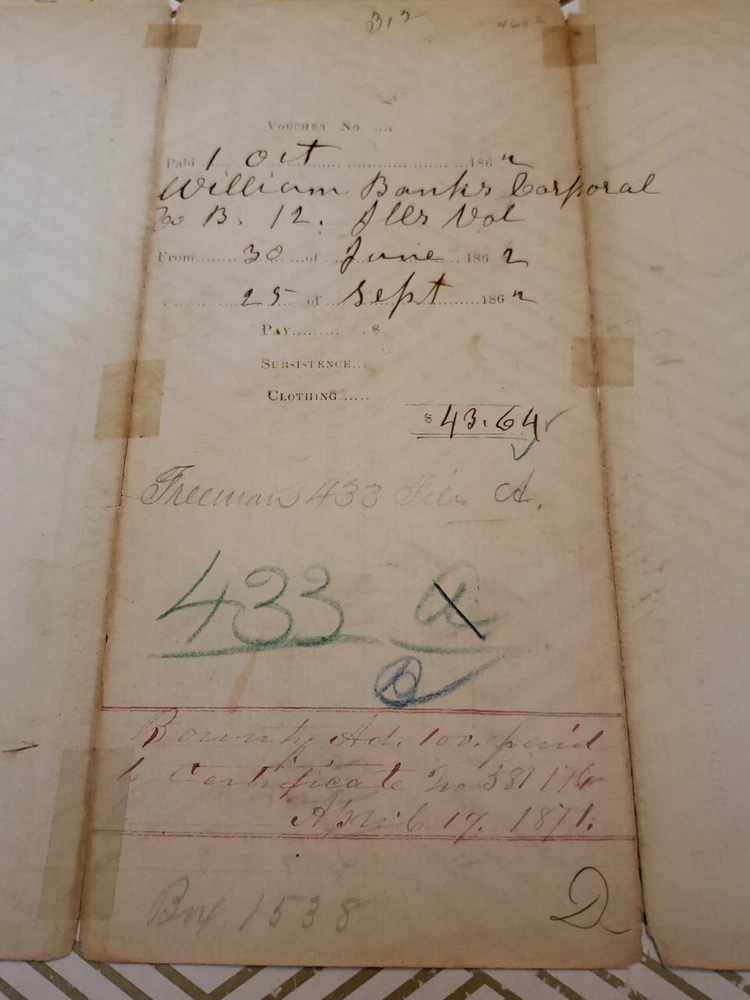 313
Voucher No ....
Paid 1 Oct 186 2
William Banks Corporal
Co B. 12. Ills Vol
From 30 of June 186 2
25 of Sept 186 2
Pay $
Subsistence
Clothing
$ 43.64
Freeman 433 Files A.
433 A
B
Bounty Ad. 100. paid
by Certificate No 381176
April 17. 1871.
Box 1538
D